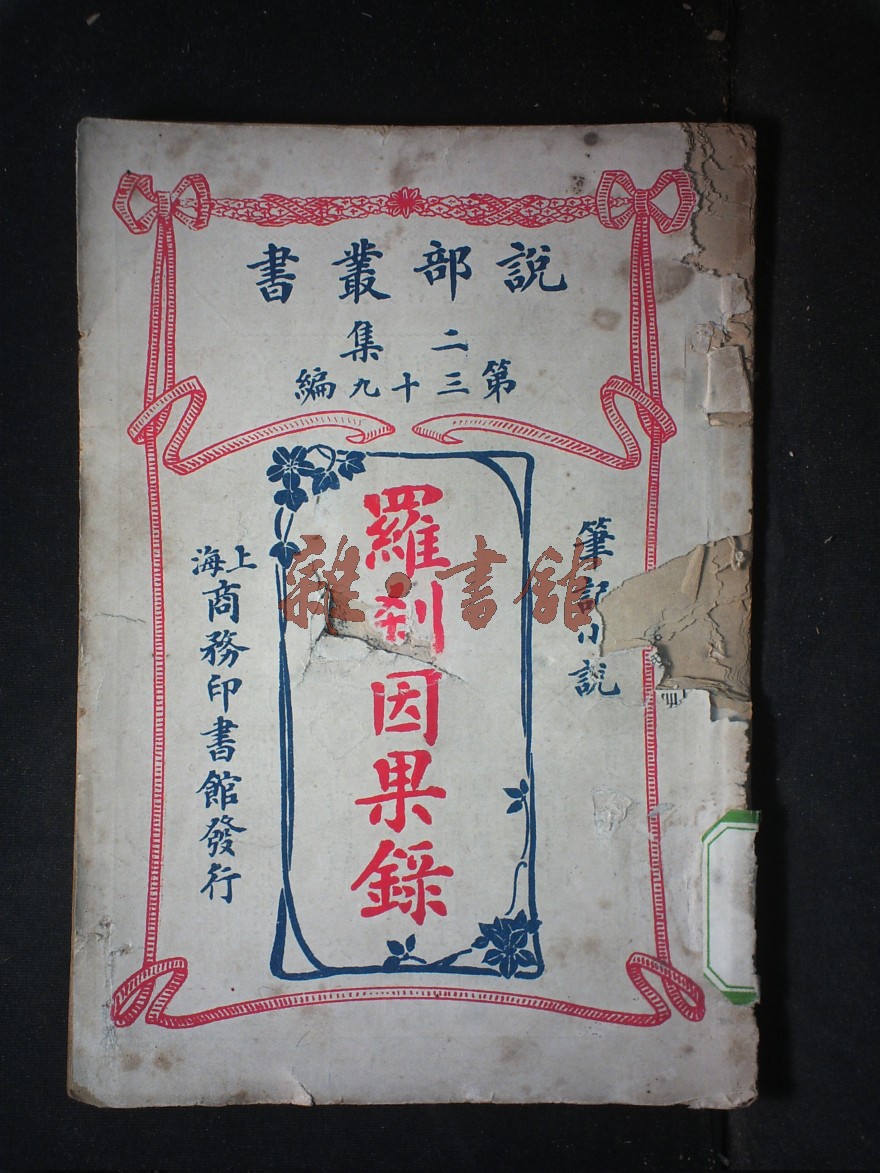 說部叢書
二集
第三十九編
筆記小說
羅剎因果錄
上海
商務印書館發行
雜·書館